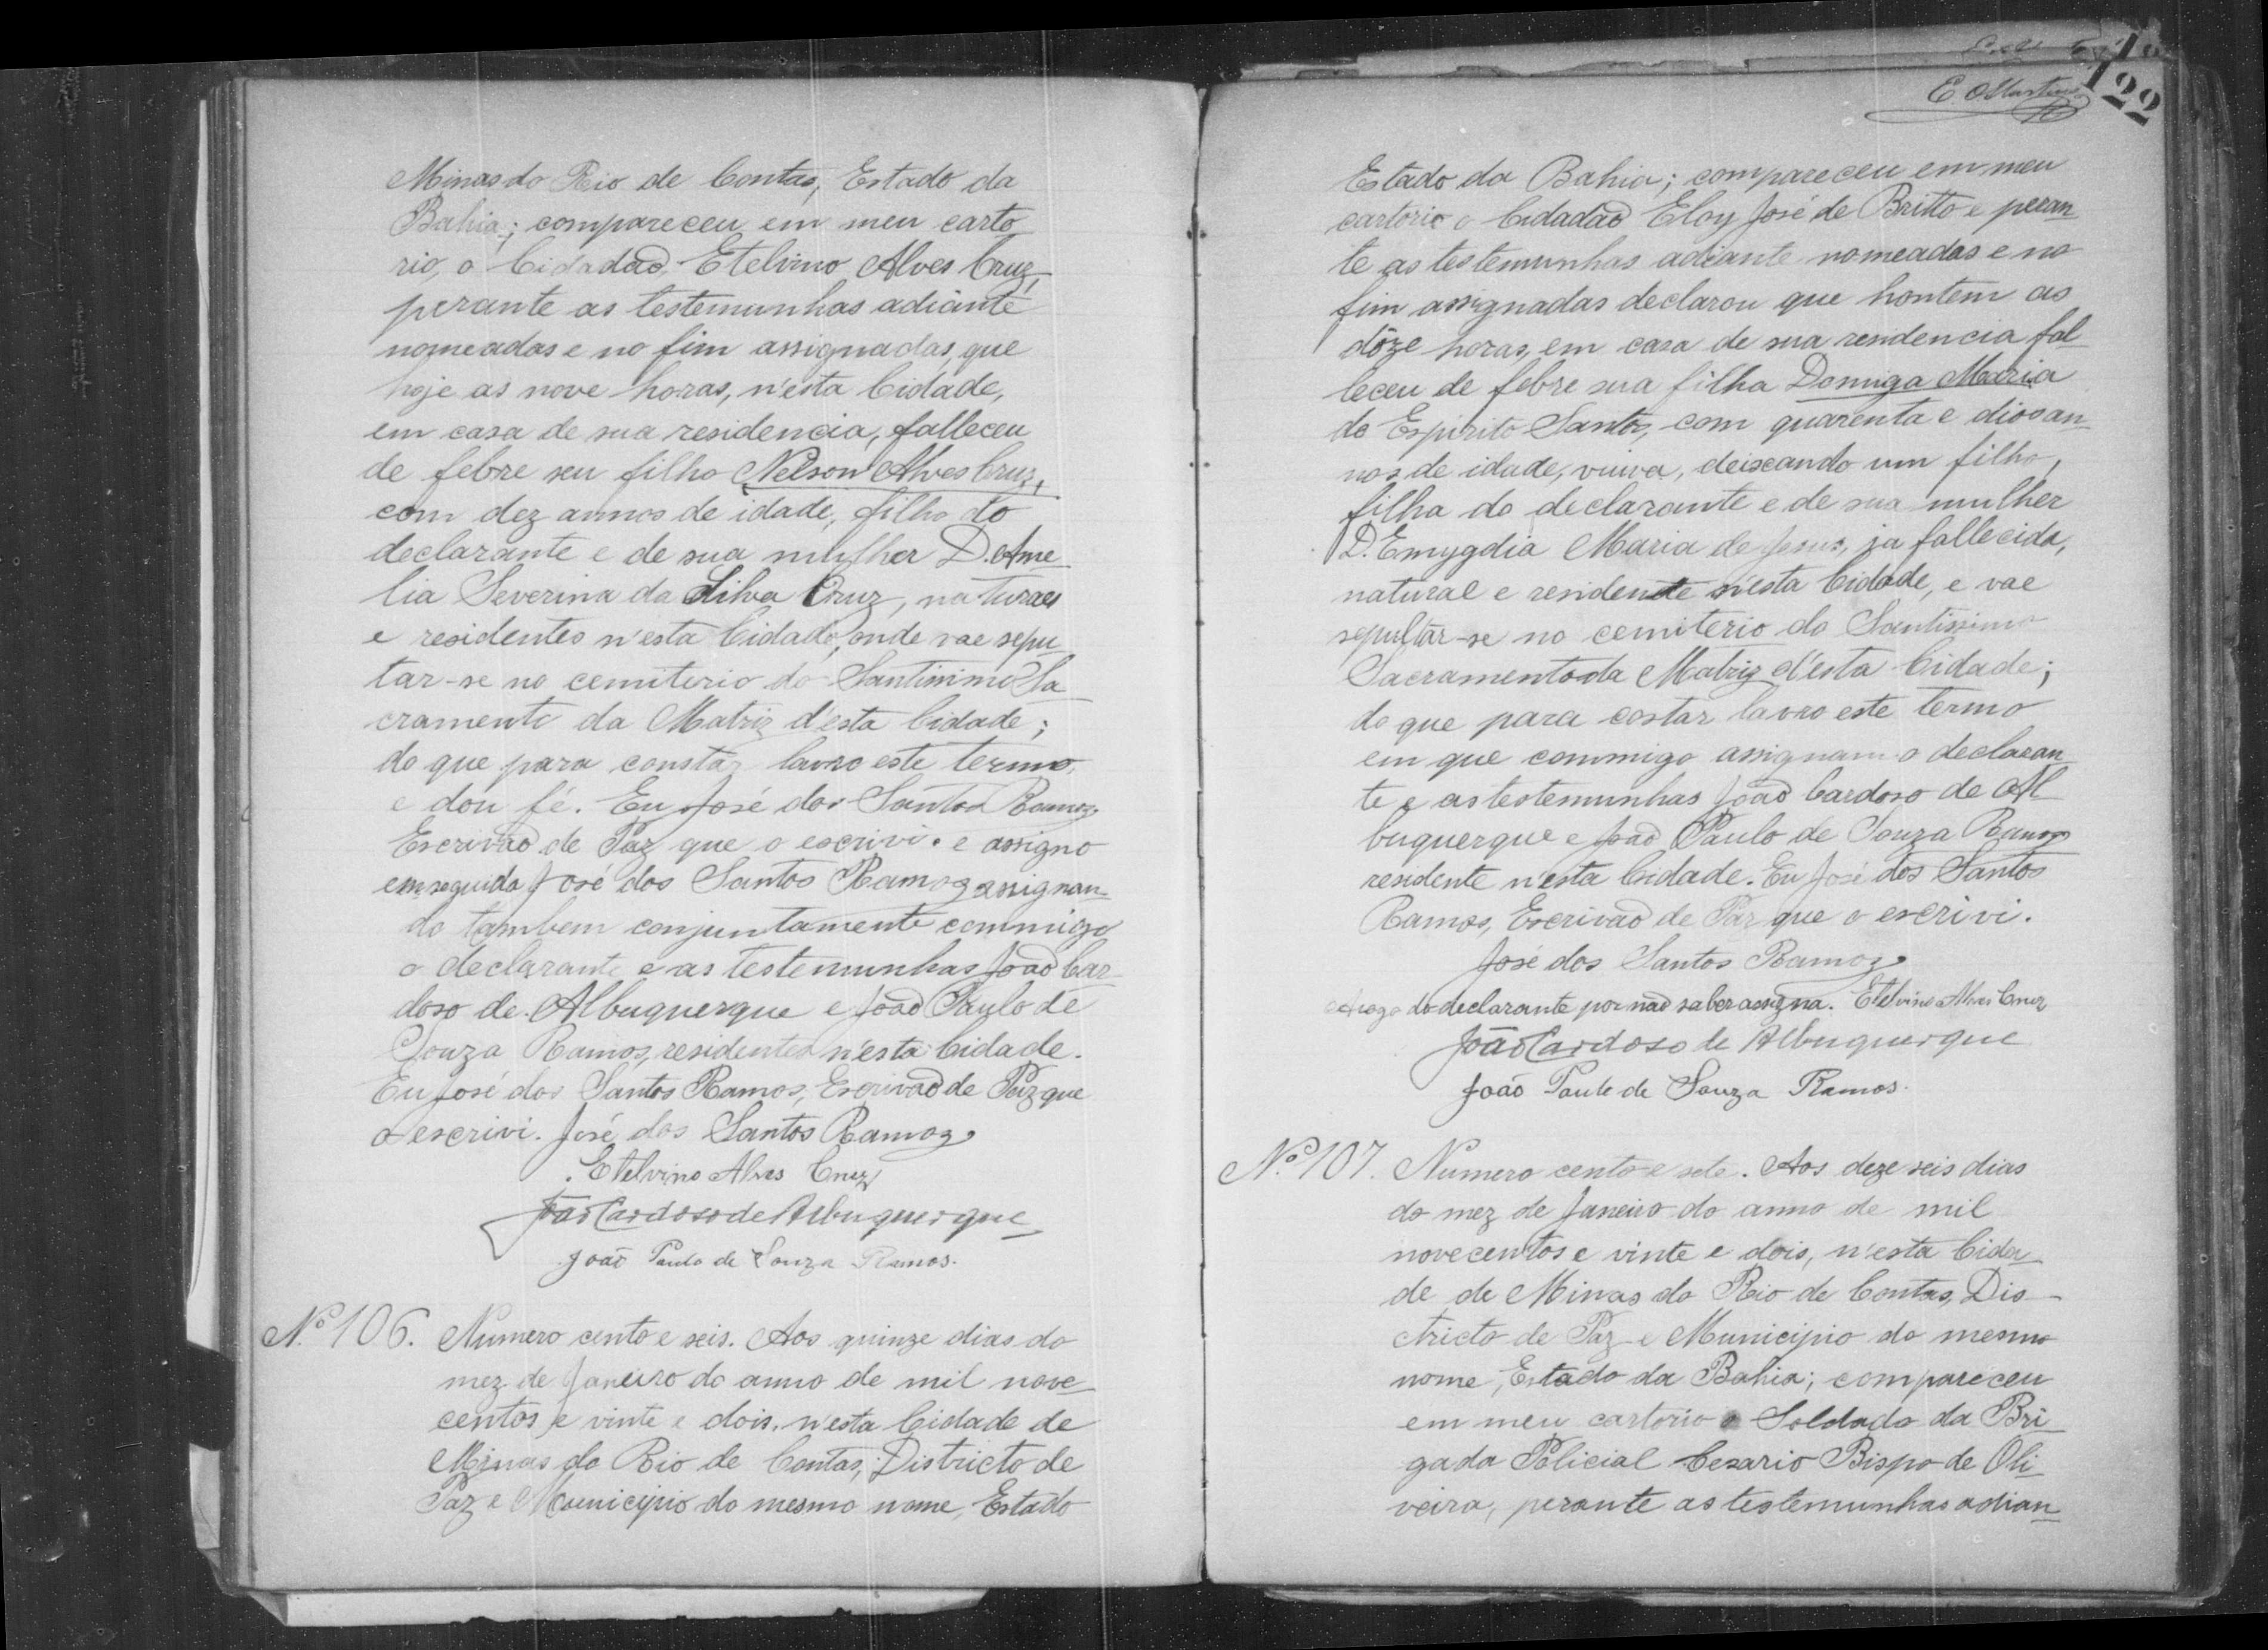 Minas do Rio de Contas, Estado da
Bahia; compareceu em meu carto
rio, o Cidadão, Etelvino Alves Cruz,
perante as testemunhas adiante
nomeadas e no fim assignadas, que
hoje as nove horas, n'esta Cidade,
em casa de sua residencia, falleceu
de febre seu filho Nelson Alves Cruz,
com dez annos de idade, filho do
declarante e de sua mulher D. Ame
lia Severina da Silva Cruz, naturaes
e residentes n'esta Cidade, onde vae sepu
tar-se no cemiterio do Santissimo Sa
cramento da Matriz d'esta Cidade;
do que para constar lavro este termo,
e dou fé. Eu José dos Santos Ramos
Escrivão de Paz que o escrivi. e assigno
em seguida José dos Santos Ramos assignan
do tambem conjuntamente commigo
o declarante e as testemunhas João Car
doso de Albuquerque e João Paulo de
Souza Ramos, residentes n'esta Cidade.
Eu José dos Santos Ramos, Escrivão de Paz que
o escrivi. José dos Santos Ramos
Etelvino Alves Cruz
João Cardoso de Albuquerque
João Paulo de Souza Ramos.
Nº 106. Numero cento e seis. Aos quinze dias do
mez de Janeiro do anno de mil nove
centos e vinte e dois, n'esta Cidade de
Minas do Rio de Contas, Districto de
Paz e Municipio do mesmo nome, Estado
122
Estado da Bahia; compareceu em meu
cartorio o Cidadão Eloy José de Britto e peran
te as testemunhas adiante nomeadas e no
fim assignadas declarou que hontem as
dôze horas, em casa de sua residencia fal
leceu de febre sua filha Dominga Maria
do Espirito Santo, com quarenta e dios an
nos de idade, viuva, deixando um filho,
filha do declarante e de sua mulher
D. Emygdia Maria de Jesus, ja fallecida,
natural e residente n'esta Cidade, e vae
sepultar-se no cemiterio do Santissimo
Sacramento da Matriz d'esta Cidade;
do que para costar lavro este termo
em que commigo assignam o declaran
te e as testemunhas João Cardoso de Al
buquerque e João Paulo de Souza Ramos
residente n'esta Cidade. Eu José dos Santos
Ramos, Escrivão de Paz que o escrivi.
José dos Santos Ramos
A rogo do declarante por não saber assigna. Etelvino Alves Cruz
João Cardoso de Albuquerque
João Paulo de Souza Ramos.
Nº 107. Numero cento e sete. Aos deze seis dias
do mez de Janeiro do anno de mil
novecentos e vinte e dois, n'esta Cida
de de Minas do Rio de Contas, Dis-
tricto de Paz e Municipio do mesmo
nome, Estado da Bahia; compareceu
em meu cartorio o Soldado da Bri
gada Policial Cezario Bispo de Oli
veira, perante as testemunhas adian